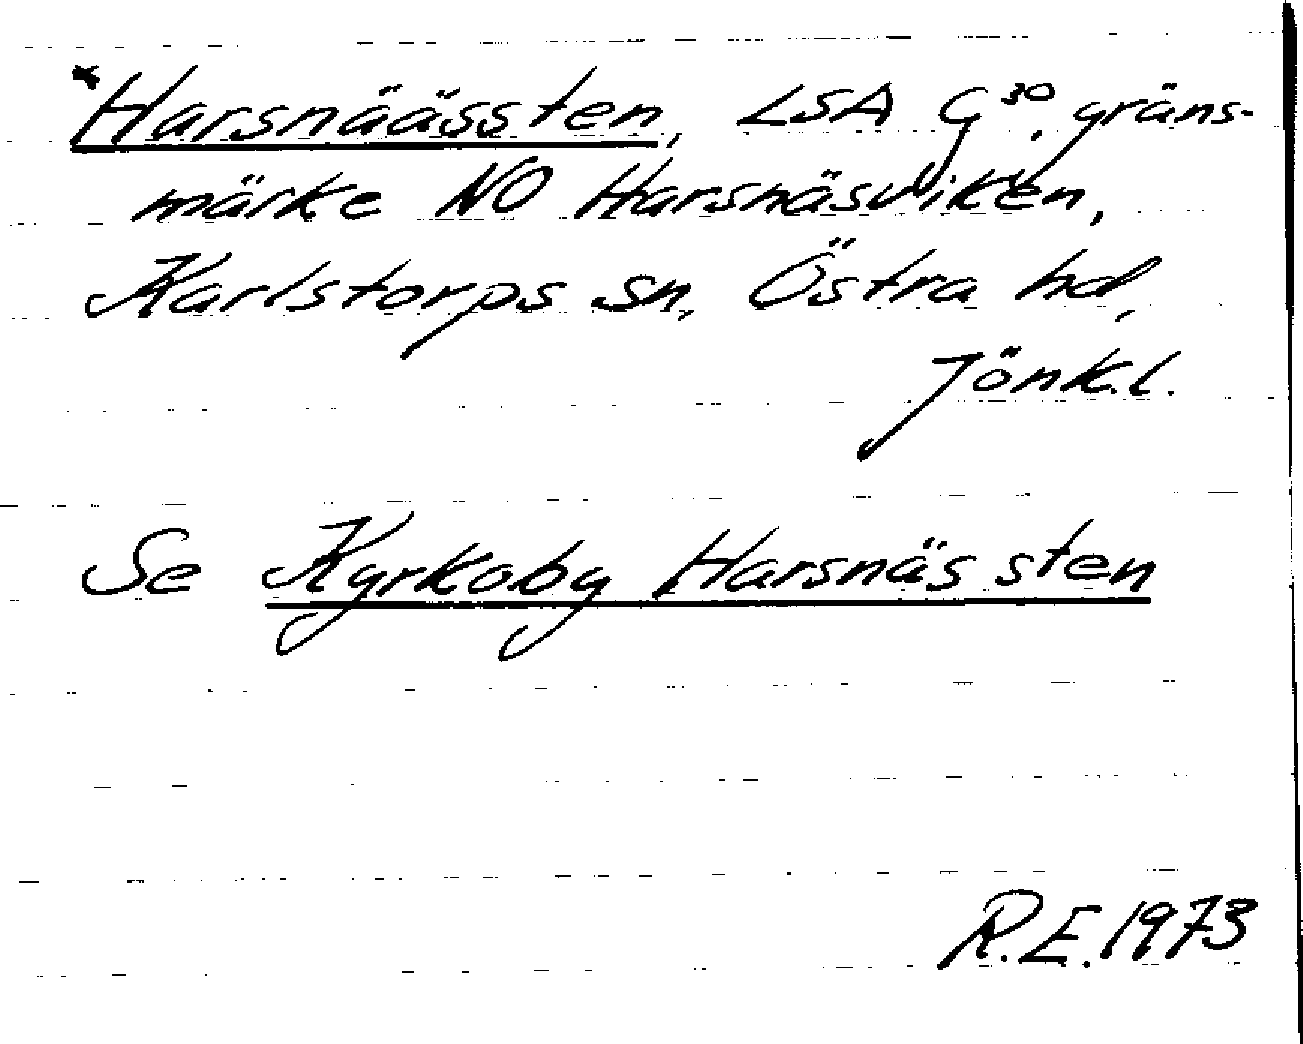 *Harsnäässten, LSA G³⁰, gräns-
märke NO Harsnäsviken,
Karlstorps sn, Östra hd,
Jönk.l.
Se Kyrkoby Harsnäs sten
R.E. 1973